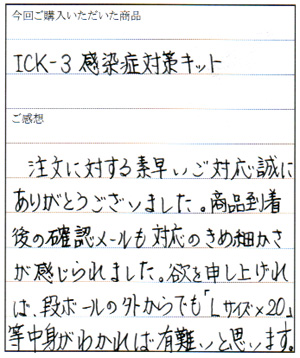 今回ご購入いただいた商品
ICK-3 感染症対策キット
ご感想
注文に対する素早いご対応誠に
ありがとうございました。商品到着
後の確認メールも対応のきめ細かさ
が感じられました。欲を申し上げれ
ば、段ボールの外からでも「Lサイズ×20」
等中身がわかれば有難いと思います。